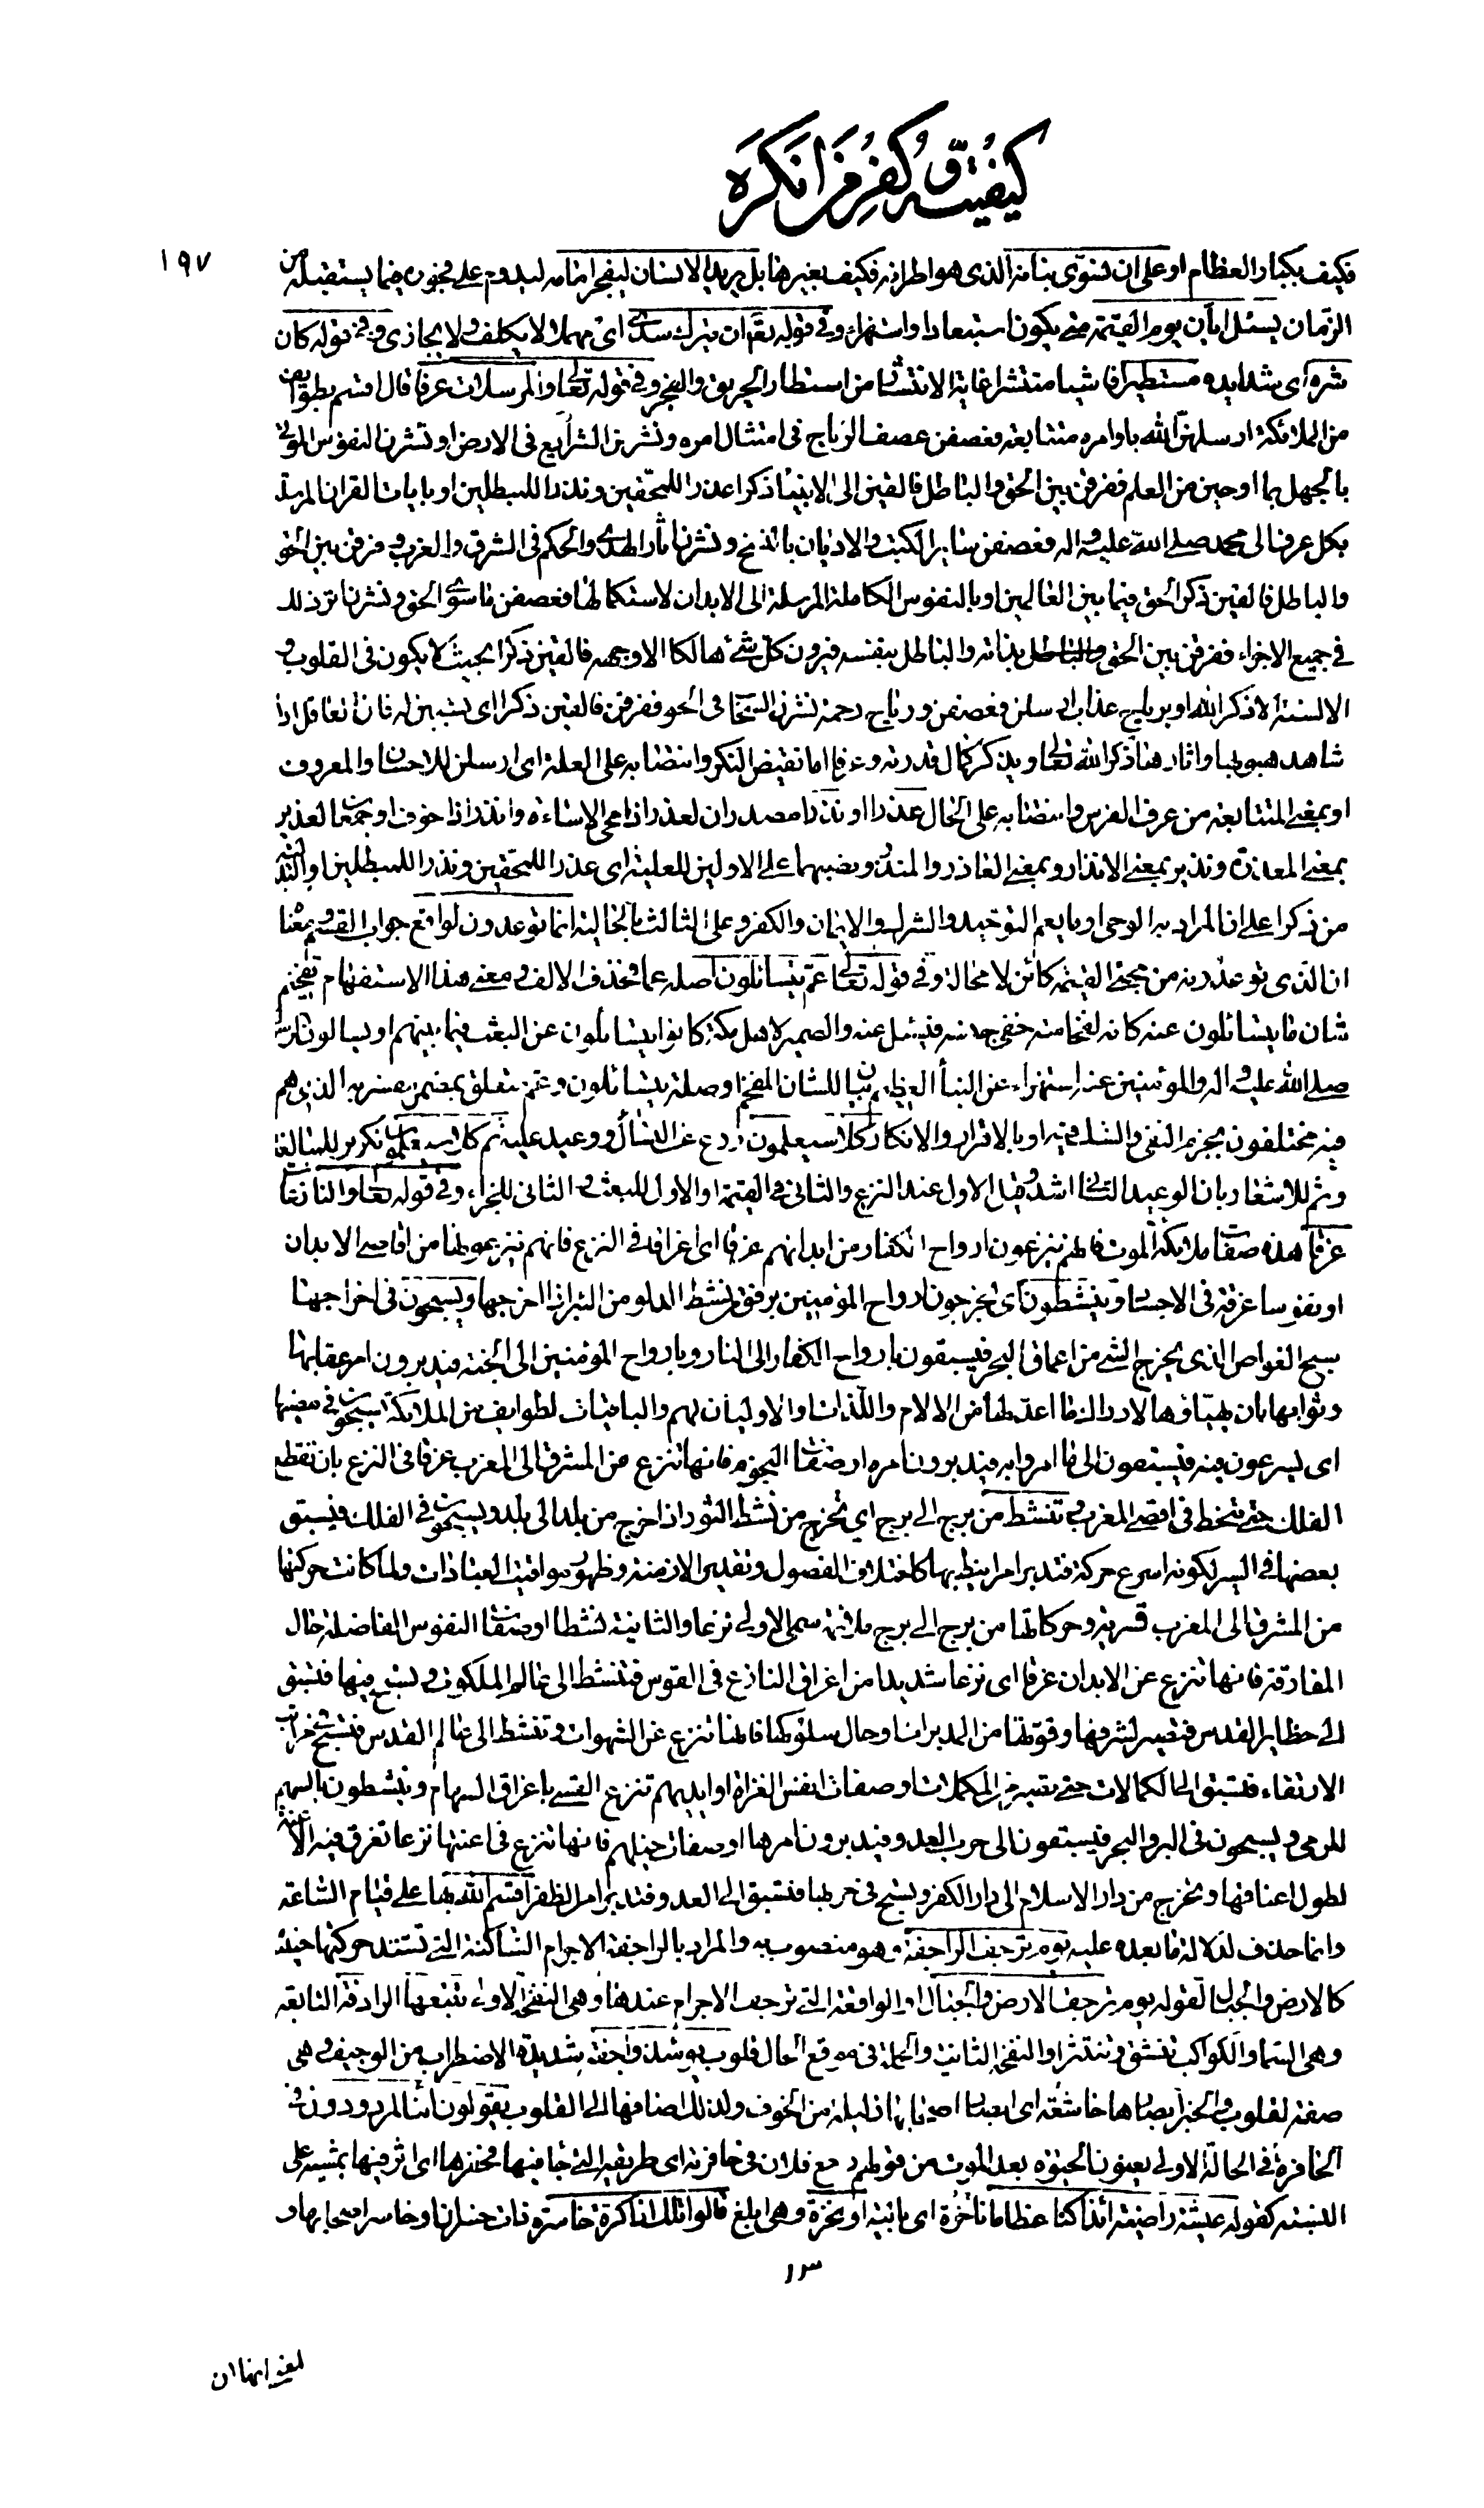 كيفيته وكفر من انكره
١٩٧
فكيف بكبار العظام او على ان نسوّى بنانه الذى هو اطرافه فكيف بغيرها بل يريد الانسان ليفجر امامه ليدوم على فجوره فيما يستقبله من
الزمان يسئل ايان يوم القيمة متى يكون استبعادا واستهزاء وفى قوله تعالى ان يترك سدى اى مهملا لا يكلف ولا يجازى وفى قوله كان
شره اى شدايده مستطيرا فاشيا منتشرا غاية الانتشار من استطار الحريق والفجر وفى قوله تعالى والمرسلات عرفا قال اقسم بطوايف
من الملائكة ارسلهن الله باوامره متتابعة فعصفن عصف الرياح فى امتثال امره ونشرن الشرايع فى الارض او نشرن النفوس الموتى
بالجهل بما اوحين من العلم ففرقن بين الحق والباطل فالقين الى الانبياء ذكرا عذرا للمحقين ونذرا للمبطلين او بايات القران المرسلة
بكل عرف الى محمد صلى الله عليه واله فعصفن ساير الكتب والاديان بالنسخ ونشرن اثار الهدى والحكم فى الشرق والغرب وفرقن بين الحق
والباطل فالقين ذكر الحق فيما بين العالمين او بالنفوس الكاملة المرسلة الى الابدان لاستكمالها فعصفن ما سوى الحق ونشرن اثر ذلك
فى جميع الاجزاء ففرقن بين الحق والباطل بذاته والباطل بنفسه فيرون كل شئ هالكا الا وجهه فالقين ذكرا بحيث لا يكون فى القلوب و
الالسنة الا ذكر الله او برياح عذاب ارسلن فعصفن ورياح رحمة نشرن السحاب فى الجو ففرقن فالقين ذكرا اى تسببن له فان العاقل اذا
شاهد هبوبها واثارها ذكر الله تعالى ويذكر كمال قدرته وعرفا اما نقيض النكر وانتصابه على العلة اى ارسلن للاحسان والمعروف
او بمعنى المتتابعة من عرف الفرس وانتصابه على الحال عذرا او نذرا مصدران لعذر اذا محى الاسائة وانذر اذا خوف او جمعان لعذير
بمعنى المعذرة ونذير بمعنى الانذار وبمعنى العاذر والمنذر ونصبهما على الاولين للعلية اى عذرا للمحقين ونذرا للمبطلين او البدلية
من ذكرا على ان المراد به الوحى او ما يعم التوحيد والشرك والايمان والكفر وعلى الثالث بالحالية انما توعدون لواقع جواب القسم ومعناه
ان الذى توعدونه من مجئ القيمة كائن لا محالة وفى قوله تعالى عم يتسائلون اصله عما فحذف الالف ومعنى هذا الاستفهام تفخيم
شان ما يتسائلون عنه كانه لفخامته خفى جنسه فيسئل عنه والضمير لاهل مكة كانوا يتسائلون عن البعث فيما بينهم او يسالون الرسول
صلى الله عليه واله والمؤمنين عنه استهزاء عن النبأ العظيم بيان للشان المفخم او صلة يتسائلون وعم متعلق بمضمر مفسر به الذى هم
فيه مختلفون بجزم النفى والشك فيه او بالاقرار والانكار كلا سيعلمون ردع عن التسائل ووعيد عليه ثم كلا سيعلمون تكرير للمبالغة
وثم للاشعار بان الوعيد الثانى اشد وقيل الاول عند النزع والثانى فى القيمة او الاول للبعث والثانى للجزاء وفى قوله تعالى والنازعات
غرقا هذه صفات ملائكة الموت فانهم ينزعون ارواح الكفار من ابدانهم غرقا اى اغراقا فى النزع فانهم ينزعونها من اقاصى الابدان
او نفوسا غرقة فى الاجساد وينشطون اى يخرجون ارواح المؤمنين برفق من نشط الدلو من البئر اذا اخرجها ويسبحون فى اخراجها
سبح الغواص الذى يخرج الشئ من اعماق البحر فيسبقون بارواح الكفار الى النار وبارواح المؤمنين الى الجنة فيدبرون امر عقابها
وثوابها بان يهيئوها لادراك ما اعد لها من الالام واللذات او الاوليان لهم والباقيات لطوايف من الملائكة يسبحون فى مضيها
اى يسرعون فيه فيسبقون الى ما امروا به فيدبرون امره او صفات النجوم فانها تنزع من المشرق الى المغرب غرقا فى النزع بان تقطع
الفلك حتى تنحط فى اقصى المغرب وتنشط من برج الى برج اى تخرج من نشط الثور اذا خرج من بلد الى بلد ويسبحون فى الفلك فيسبق
بعضها فى السير لكونه اسرع حركة فتدبر امرا نيط بها كاختلاف الفصول وتقدير الازمنة وظهور مواقيت العبادات ولما كانت حركتها
من المشرق الى المغرب قسرية وحركاتها من برج الى برج ملائمة سمى الاولى نزعا والثانية نشطا او صفات النفوس الفاضلة حال
المفارقة فانها تنزع عن الابدان غرقا اى نزعا شديدا من اغراق النازع فى القوس فتنشط الى عالم الملكوت وتسبح فيها فتسبق
الى حظاير القدس فتصير لشرفها وقوتها من المدبرات او حال سلوكها فانها تنزع عن الشهوات وتنشط الى عالم القدس فتسبح فى مراتب
الارتقاء فتسبق الى الكمالات حتى تصير من المكملات او صفات انفس الغزاة او ايديهم تنزع القسى باغراق السهام وينشطون بالسهم
للرمى ويسبحون فى البر والبحر فيسبقون الى حرب العدو فيدبرون امرها او صفات خيلهم فانها تنزع فى اعنتها نزعا تغرق فيه الاعنة
لطول اعناقها وتخرج من دار الاسلام الى دار الكفر وتسبح فى حربها فتسبق الى العدو فتدبر امر الظفر اقسم الله بها على قيام الساعة
وانما حذف لدلالة ما بعده عليه يوم ترجف الراجفة وهو منصوب به والمراد بالراجفة الاجرام الساكنة التى تشتد حركتها حينئذ
كالارض والجبال لقوله يوم ترجف الارض والجبال او الواقعة التى ترجف الاجرام عندها وهى النفخة الاولى تتبعها الرادفة التابعة
وهى السماء والكواكب تنشق وتنتثر او النفخة الثانية والجملة فى موقع الحال قلوب يومئذ واجفة شديدة الاضطراب من الوجيف وهى
صفة لقلوب والخبر ابصارها خاشعة اى ابصار اصحابها ذليلة من الخوف ولذلك اضافها الى القلوب يقولون أئنا لمردودون فى
الحافرة فى الحالة الاولى يعنون الحيوة بعد الموت من قولهم رجع فلان فى حافرته اى طريقه التى جاء فيها فحفرها اى اثر فيها بمشيه على
النسبة كقوله عيشة راضية أئذا كنا عظاما ناخرة اى بالية او نخرة وهى ابلغ قالوا تلك اذا كرة خاسرة ذات خسران او خاسر اصحابها و
١٣